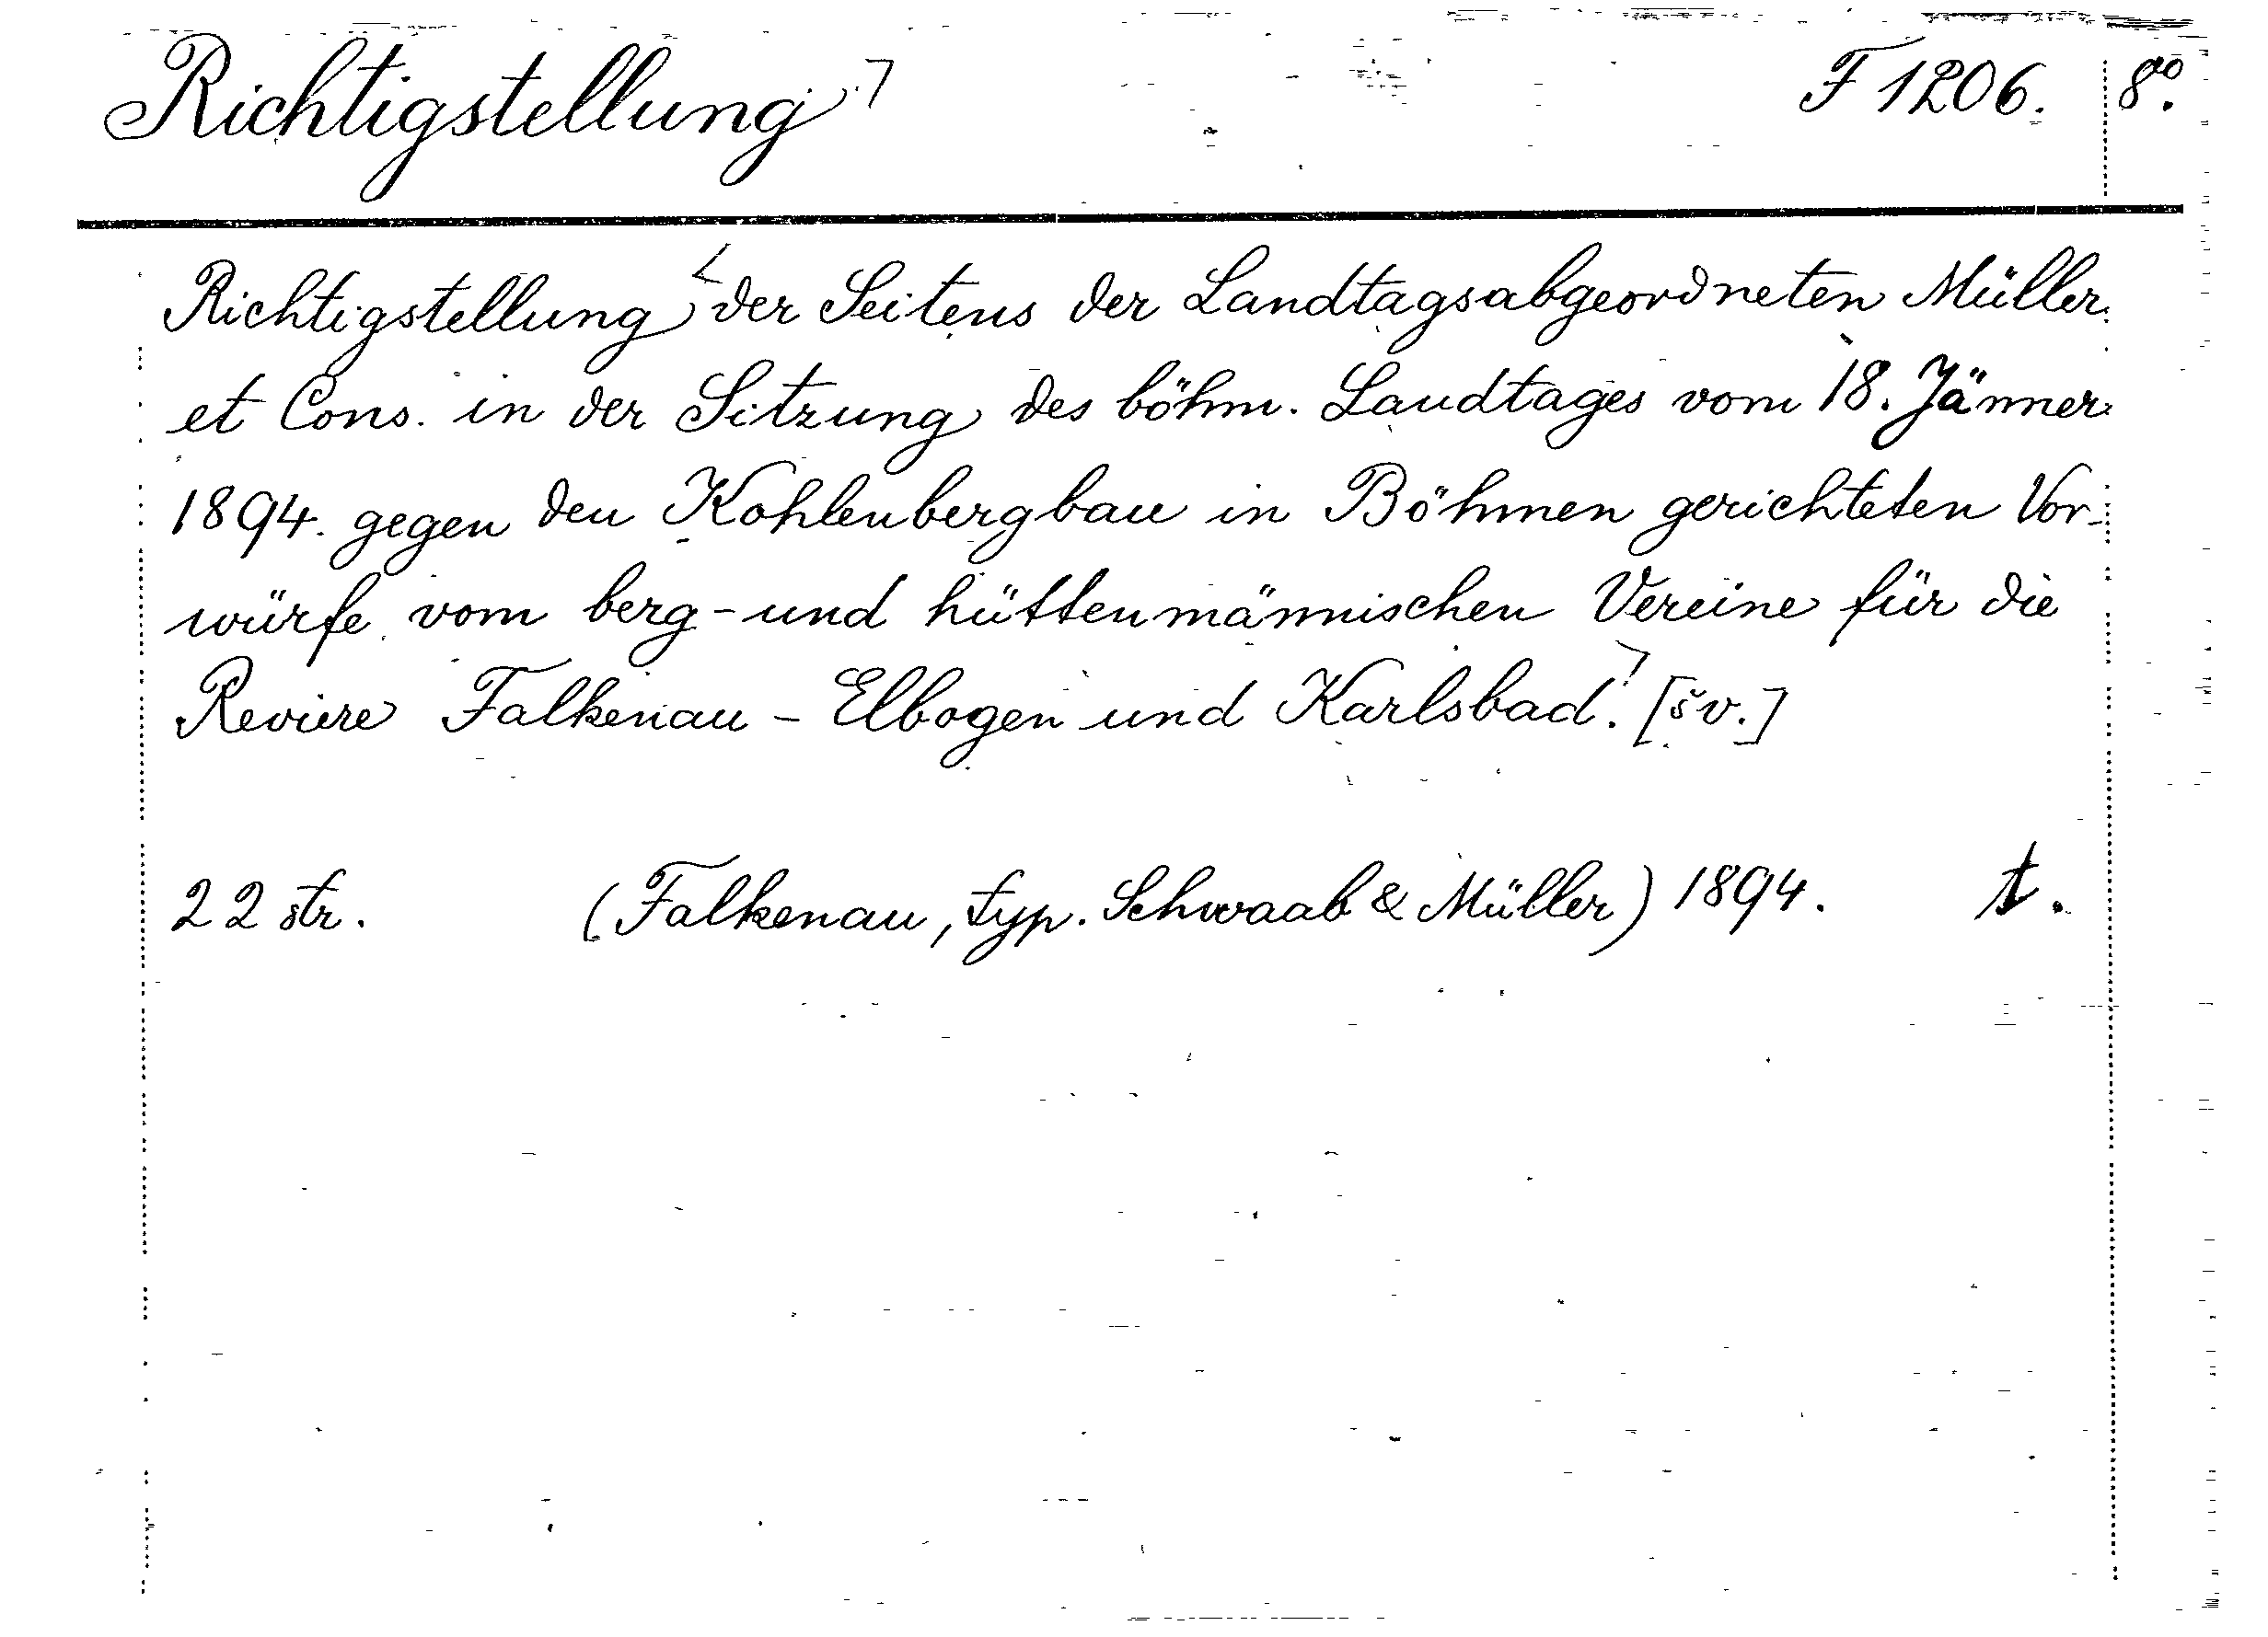 Richtigstellung F 1206. 8°.
Richtigstellung der Seitens der Landtagsabgeordneten Müller
et Cons. in der Sitzung des böhm. Landtages vom 18. Jänner
1894. gegen den Kohlenbergbau in Böhmen gerichteten Vor-
würfe vom berg-und hüttenmännischen Vereine für die
Reviere Falkenau - Elbogen und Karlsbad. [šv.]
22 str. (Falkenau, typ. Schwaab & Müller) 1894. t.